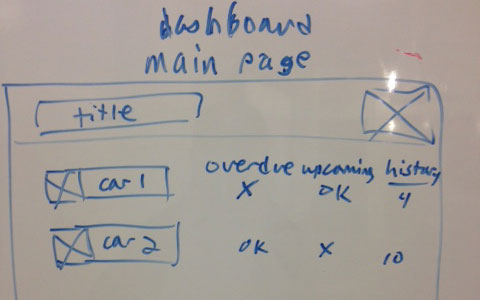 dashboard
main page
title
overdue upcoming history
car 1 X OK 4
car 2 OK X 10